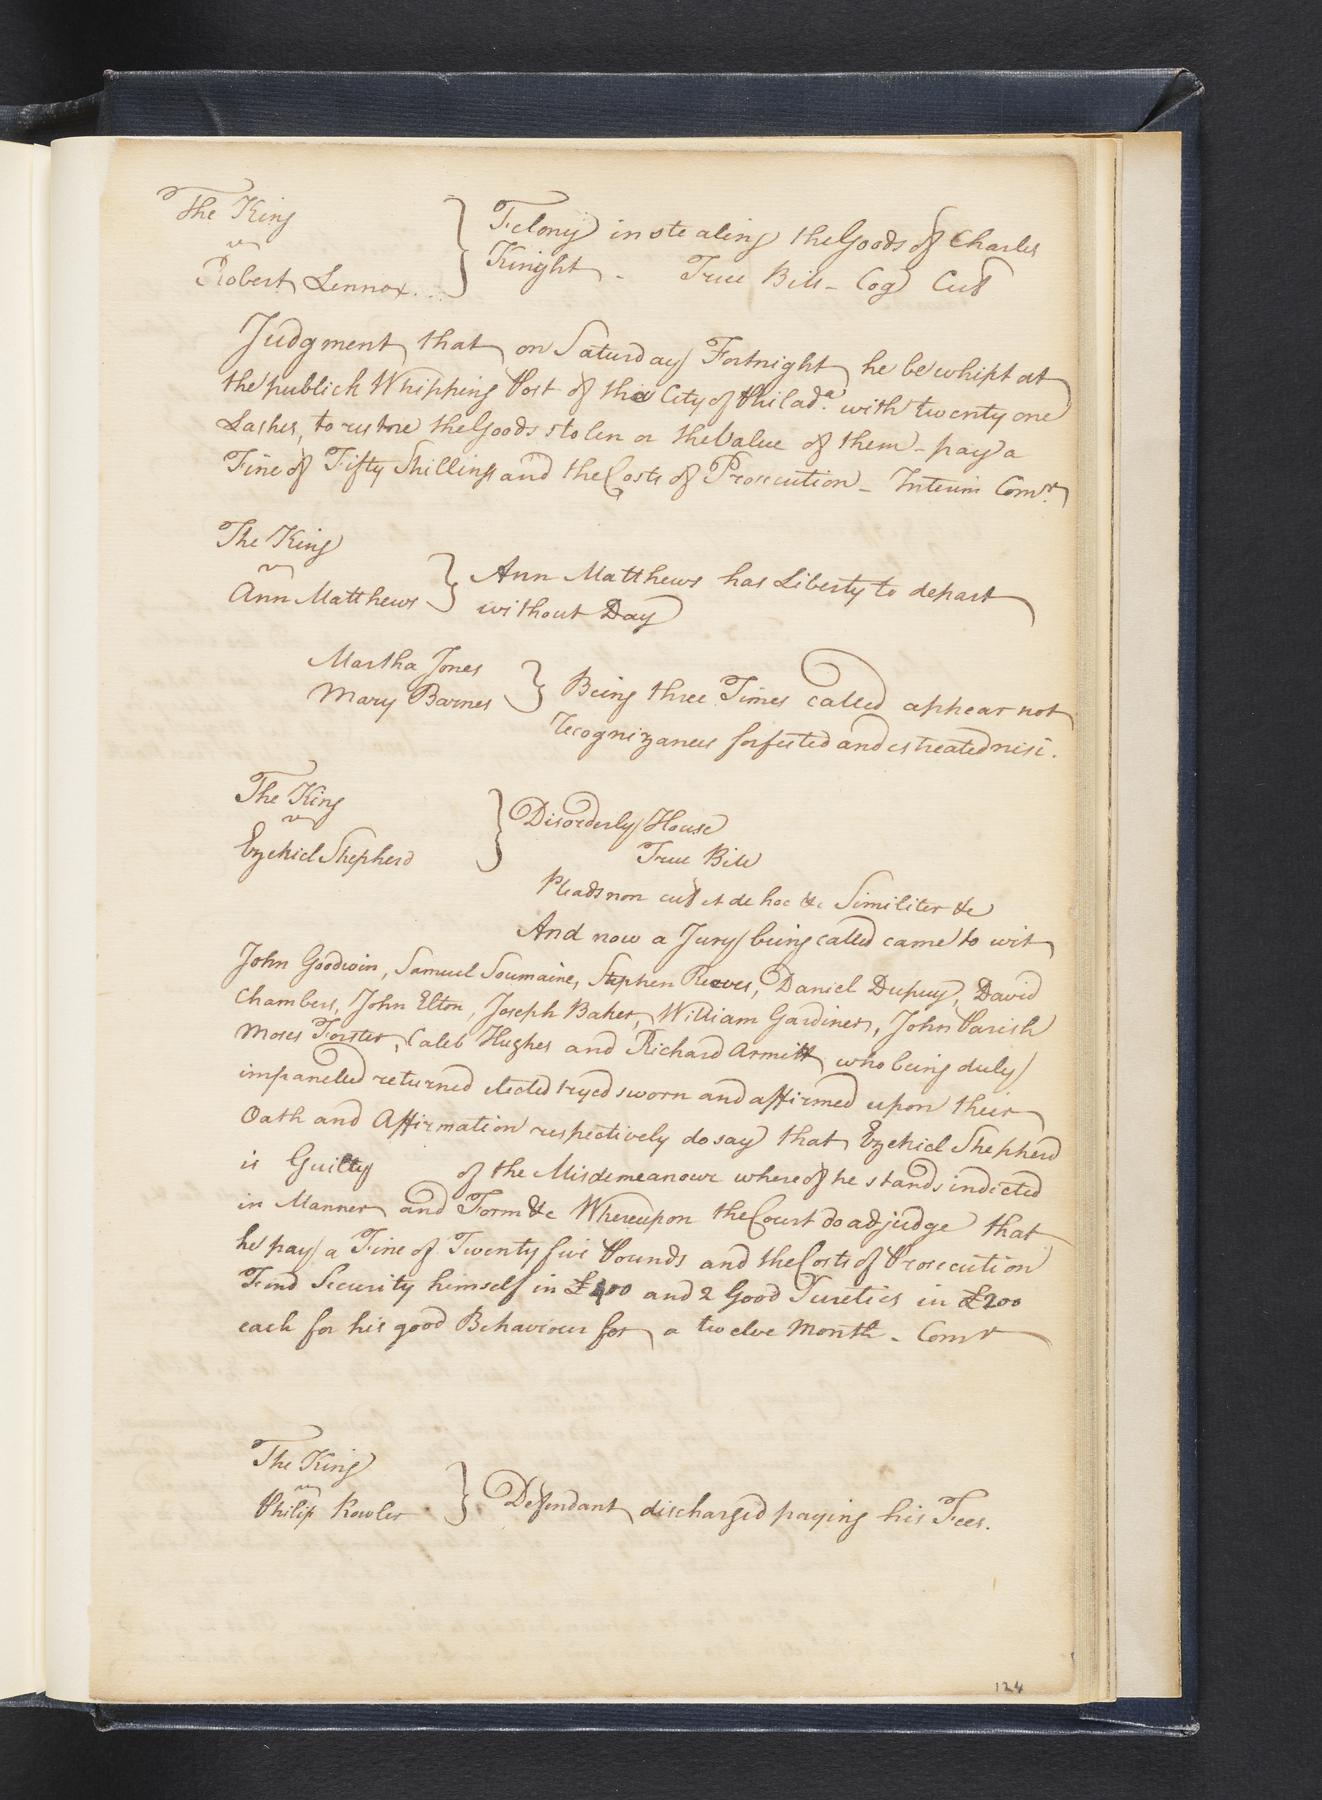 The King
v
Robert Lennox
Felony in stealing the Goods of Charles
Knight - True Bill - Cog Cul
Judgment that on Saturday Fortnight he be whipt at
the publick Whipping Post of the City of Philada. with twenty one
Lashes, to restore the Goods stolen or the Value of them - pay a
Fine of Fifty Shillings and the Costs of Prosecution - Interim Comr.
The King
v
Ann Matthews
Ann Matthews has Liberty to depart
without Day
Martha Jones
Mary Barnes
Being three Times called appear not
recognizances forfeited and estreated nisi.
The King
v
Ezekiel Shepherd
Disorderly House
True Bill
Pleads non cul et de hoc &c Similiter &c
And now a Jury being called came to wit
John Goodwin, Samuel Soumaine, Stephen Reeves, Daniel Dupuy, David
Chambers, John Elton, Joseph Baker, William Gardiner, John Parish
Moses Forster, Caleb Hughes and Richard Armitt who being duly
impaneled returned elected tryed sworn and affirmed upon their
Oath and Affirmation respectively do say that Ezekiel Shepherd
is Guilty of the Misdemeanour whereof he stands indicted
in Manner and Form &c Whereupon the Court do adjudge that
he pay a Fine of Twenty five Pounds and the Costs of Prosecution
Find Security himself in £400 and 2 Good Sureties in £200
each for his good Behaviour for a twelve Month - Comr
The King
v
Philip Rowler
Defendant discharged paying his Fees.
124